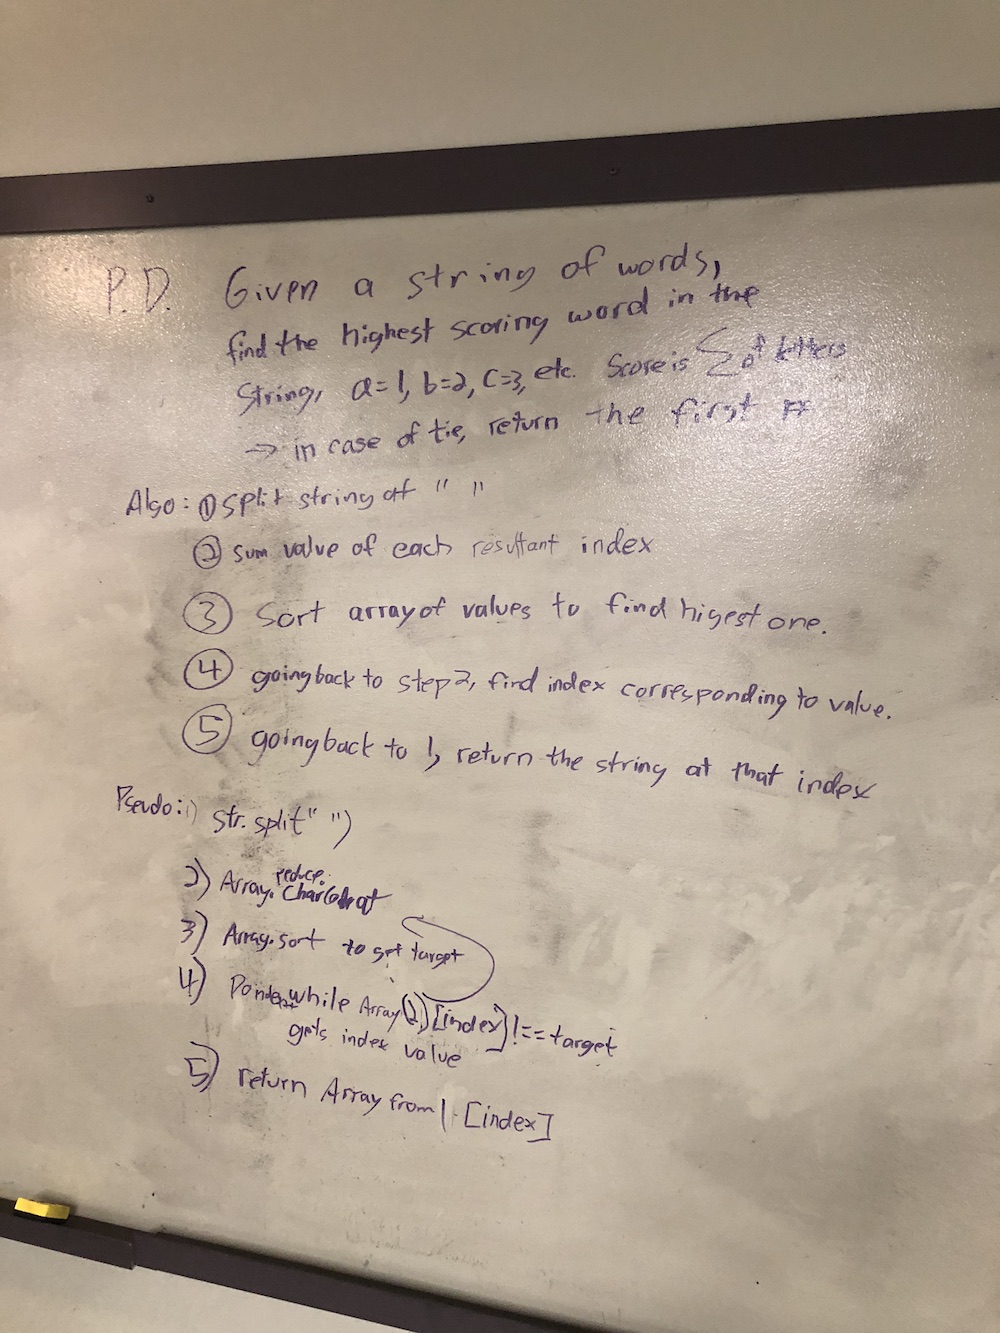 P.D. Given a string of words,
find the highest scoring word in the
string, a=1, b=2, c=3, etc. Score is ∑ of letters
→ in case of tie, return the first
Algo: ① split string at " "
② sum value of each resultant index
③ Sort array of values to find higest one.
④ going back to step 2, find index corresponding to value.
⑤ going back to 1, return the string at that index
Pseudo: 1) str. split" ")
2) Array. reduce. CharCodeat
3) Array.sort to get target
4) while Array(2)[index] !== target
gets index value
5) return Array from 1 [index]